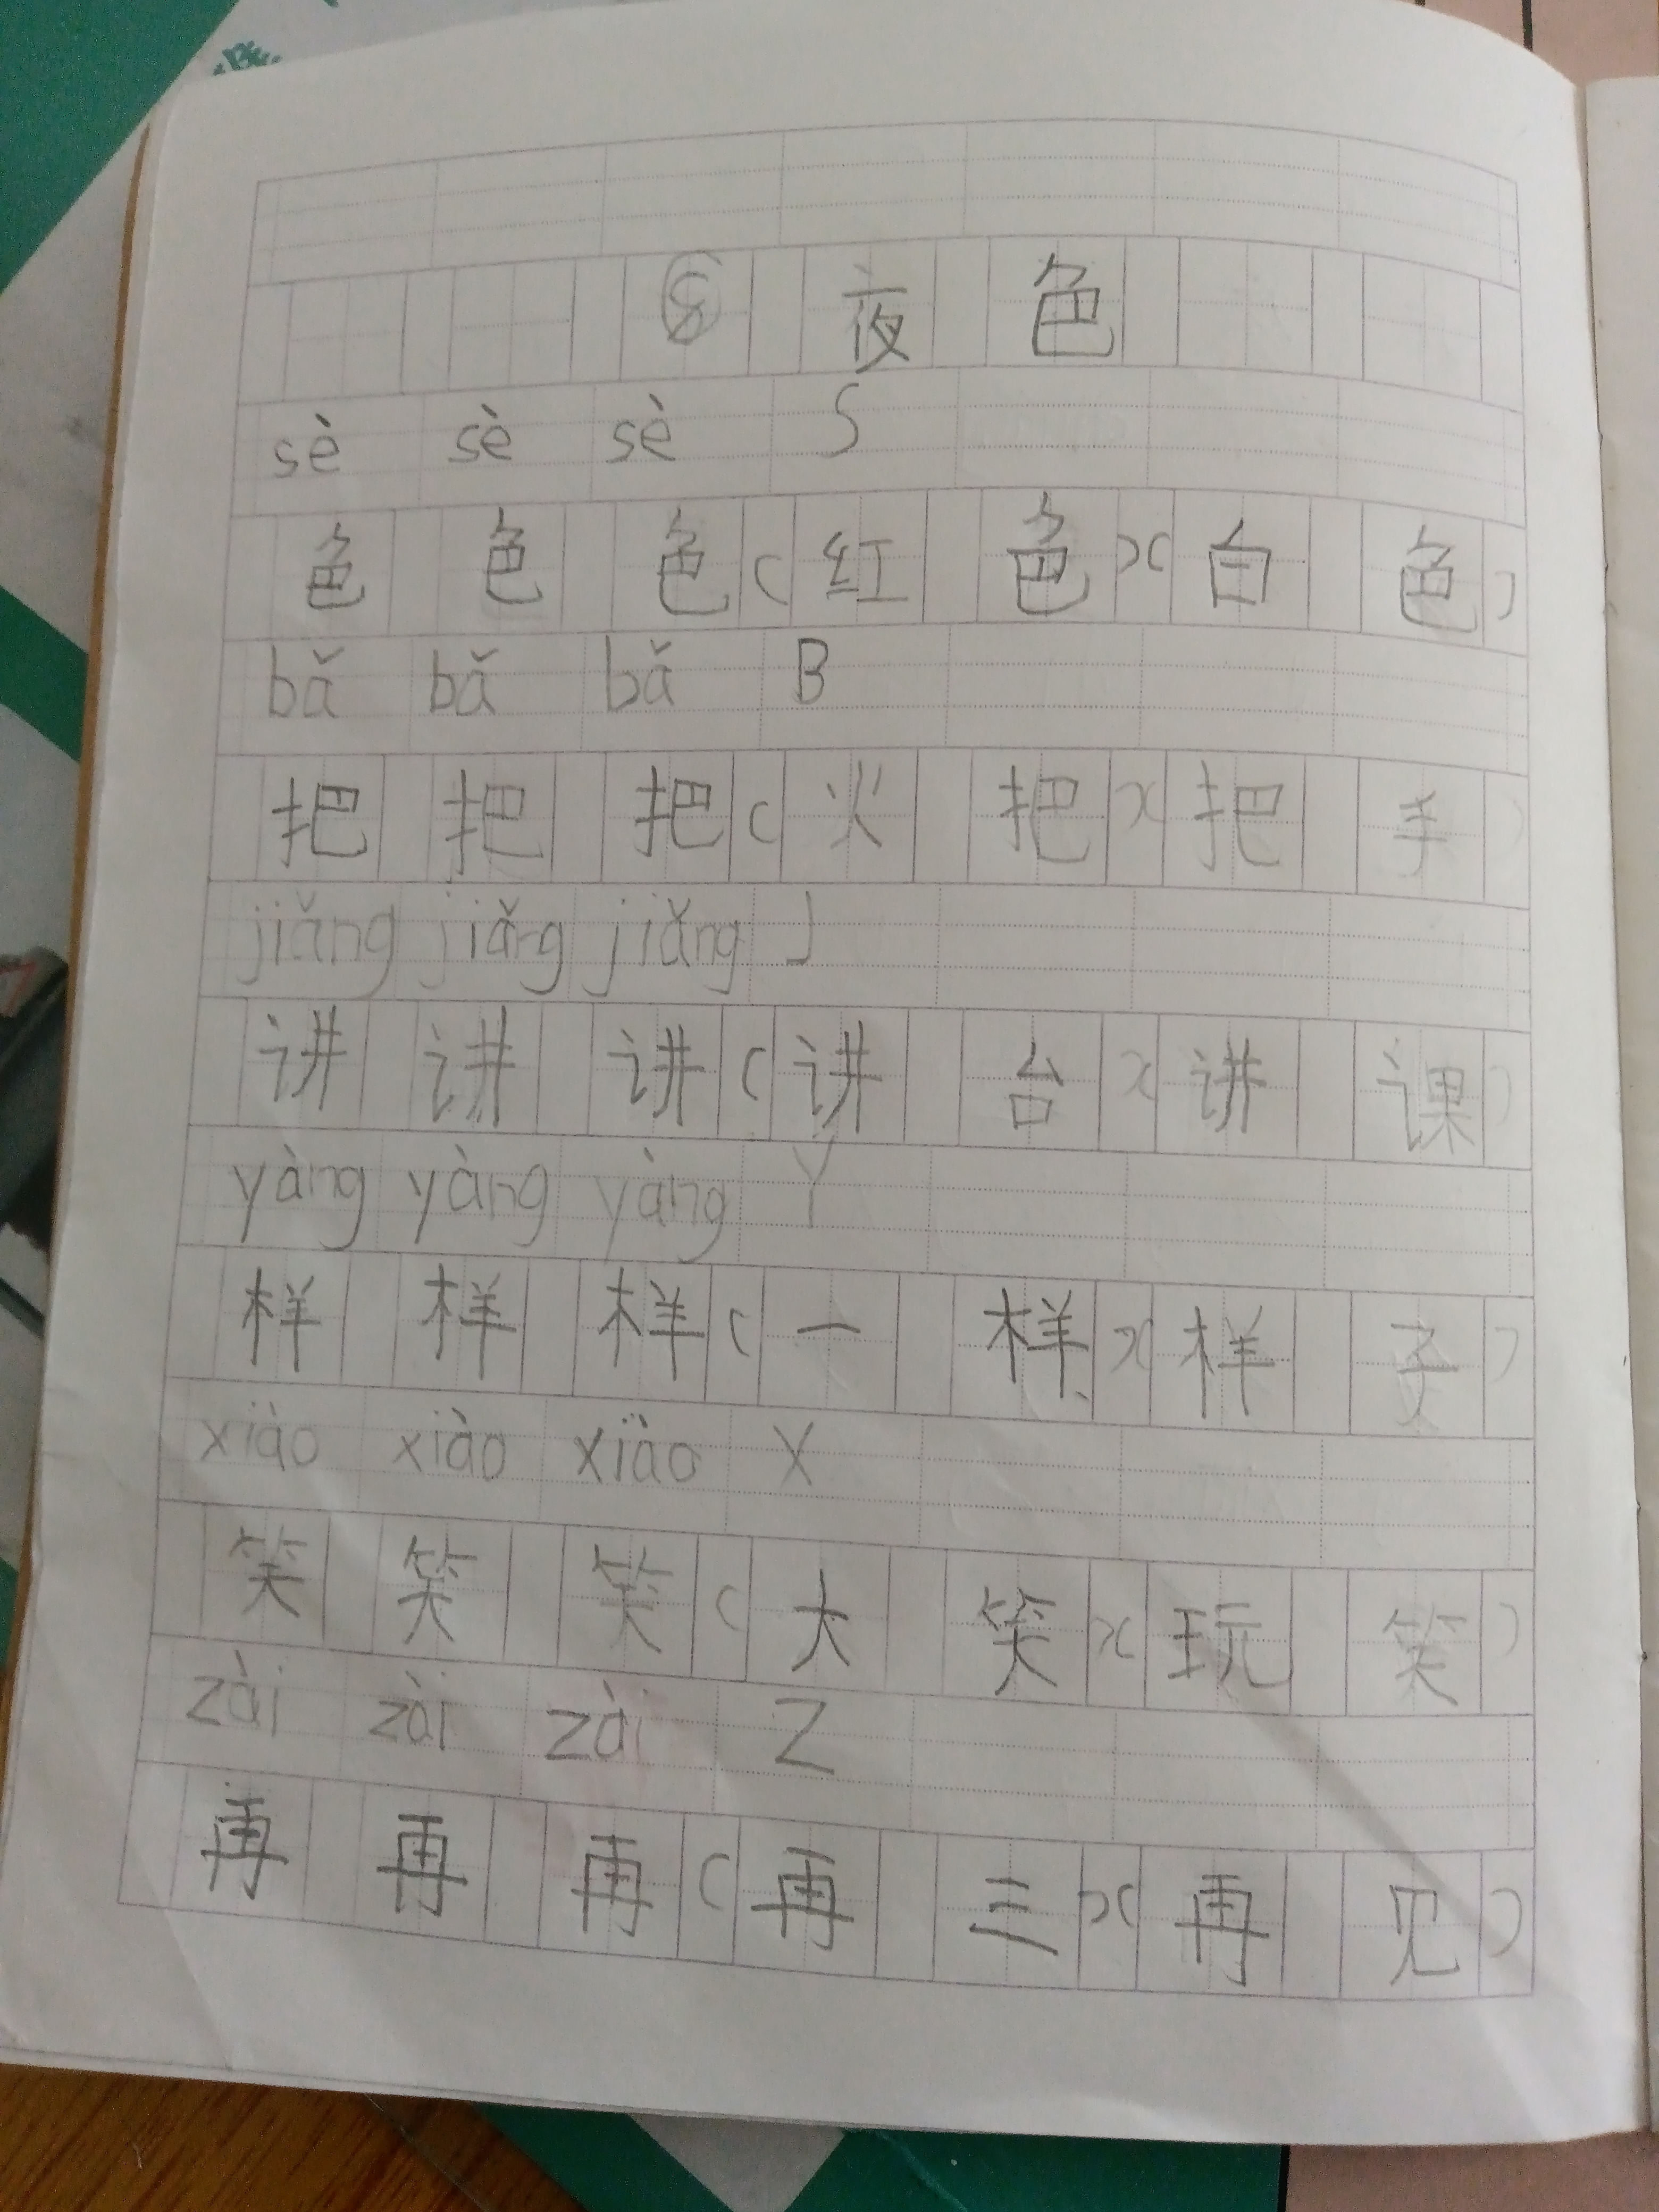 ⑧ 夜色
sè sè sè S
色 色 色 (红色)(白色)
bǎ bǎ bǎ B
把 把 把 (火把)(把手)
jiǎng jiǎng jiǎng J
讲 讲 讲 (讲台)(讲课)
yàng yàng yàng Y
样 样 样 (一样)(样子)
xiào xiào xiào X
笑 笑 笑 (大笑)(玩笑)
zài zài zài Z
再 再 再 (再三)(再见)